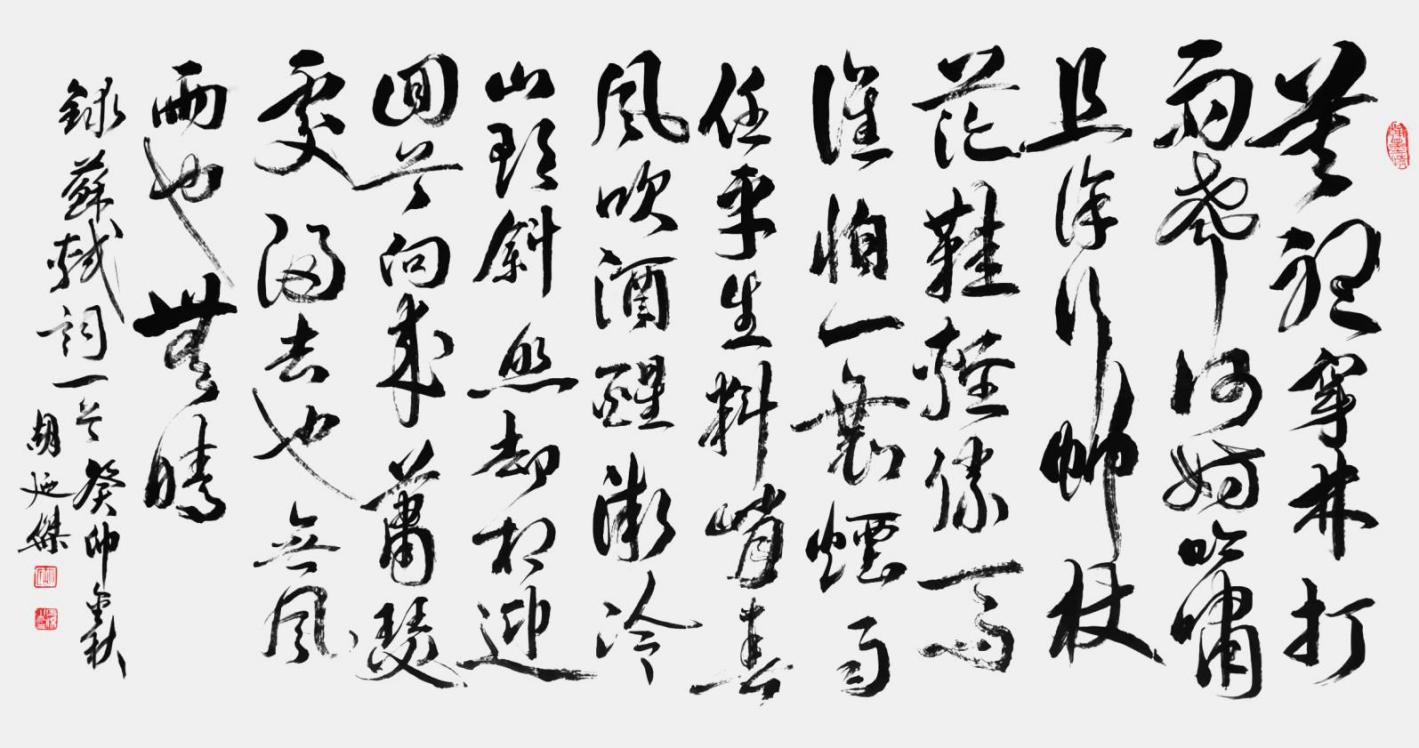 莫聽穿林打
雨聲何妨吟嘯
且徐行竹杖
芒鞋輕勝馬
誰怕一蓑煙雨
任平生料峭春
風吹酒醒微冷
山頭斜照却相迎
回首向來蕭瑟
處歸去也無風
雨也無晴
錄蘇軾詞一首癸卯金秋
胡延傑